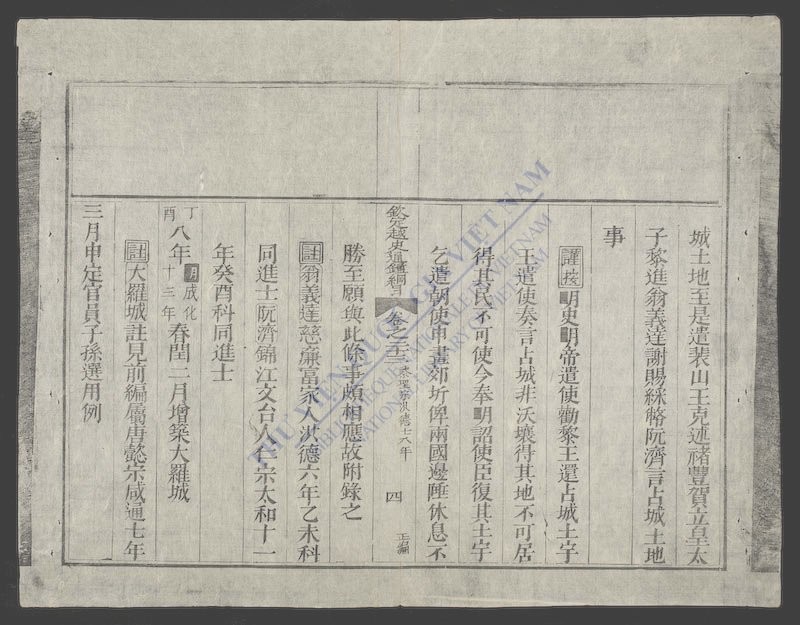 城土地至是遣裴山王克述褚豐賀立皇太
子黎進翁義達謝賜綵幣阮濟言占城土地
事
謹按明史明帝遣使勸黎王還占城土宇
王遣使奏言占城非沃壤得其地不可居
得其民不可使今奉明詔使臣復其土宇
乞遣朝使申畫郊圻俾兩國邊陲休息不
欽定越史通鑑綱目 卷之二十三 黎聖宗洪德七八年 四 正編
勝至願與此條事頗相應故附錄之
註翁義達慈廉富家人洪德六年乙未科
同進士阮濟錦江文台人仁宗太和十一
年癸酉科同進士
丁酉八年明成化十三年春閏二月增築大羅城
註大羅城註見前編屬唐懿宗咸通七年
三月申定官員子孫選用例
THƯ VIỆN QUỐC GIA VIỆT NAM
BIBLIOTHÈQUE NATIONALE DU VIETNAM
NATIONAL LIBRARY OF VIETNAM